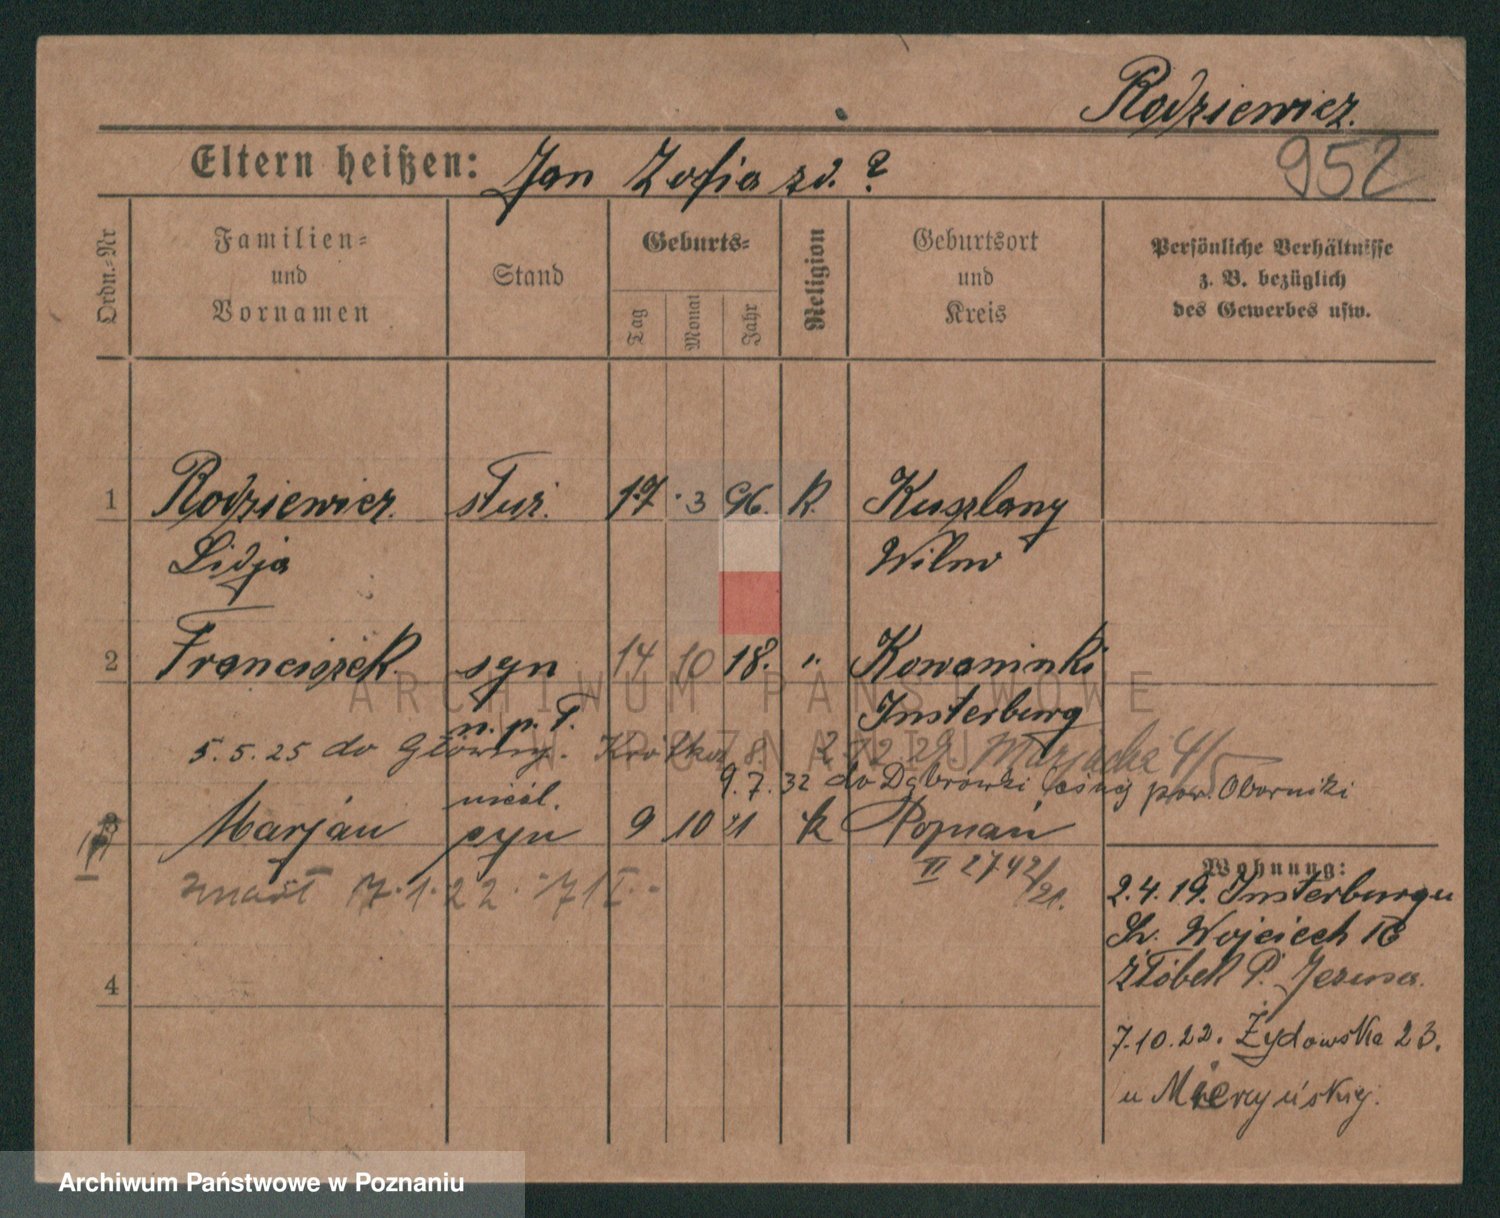 Rodziewicz.
952
Eltern heißen: Jan Zofia zd. ?
Ordn.-Nr
Familien-
und
Vornamen
Stand
Geburts-
Tag
Monat
Jahr
Religion
Geburtsort
und
Kreis
Persönliche Verhältnisse
z. B. bezüglich
des Gewerbes usw.
1 Rodziewicz. służ. 17 3 96. k. Kuszlany
Lidja Wilno
2 Franciszek syn 14 10 18. " Kowaninki
n. p. T. Insterburg
5.5.25 do Główny. Krótka 8.
9.7.32 do Dąbrówki Leśnej pow. Oborniki
nieśl.
3 Marjan syn 9 10 21 k Poznań
zmarł 17.1.22.
II 2742/21.
Wohnung:
2.4.19. Insterburgu
Św. Wojciech
Żłóbek P. Jezusa.
4
7.10.22. Żydowska 23.
u Mierzyńskiej.
ARCHIWUM PAŃSTWOWE
W POZNANIU
Archiwum Państwowe w Poznaniu